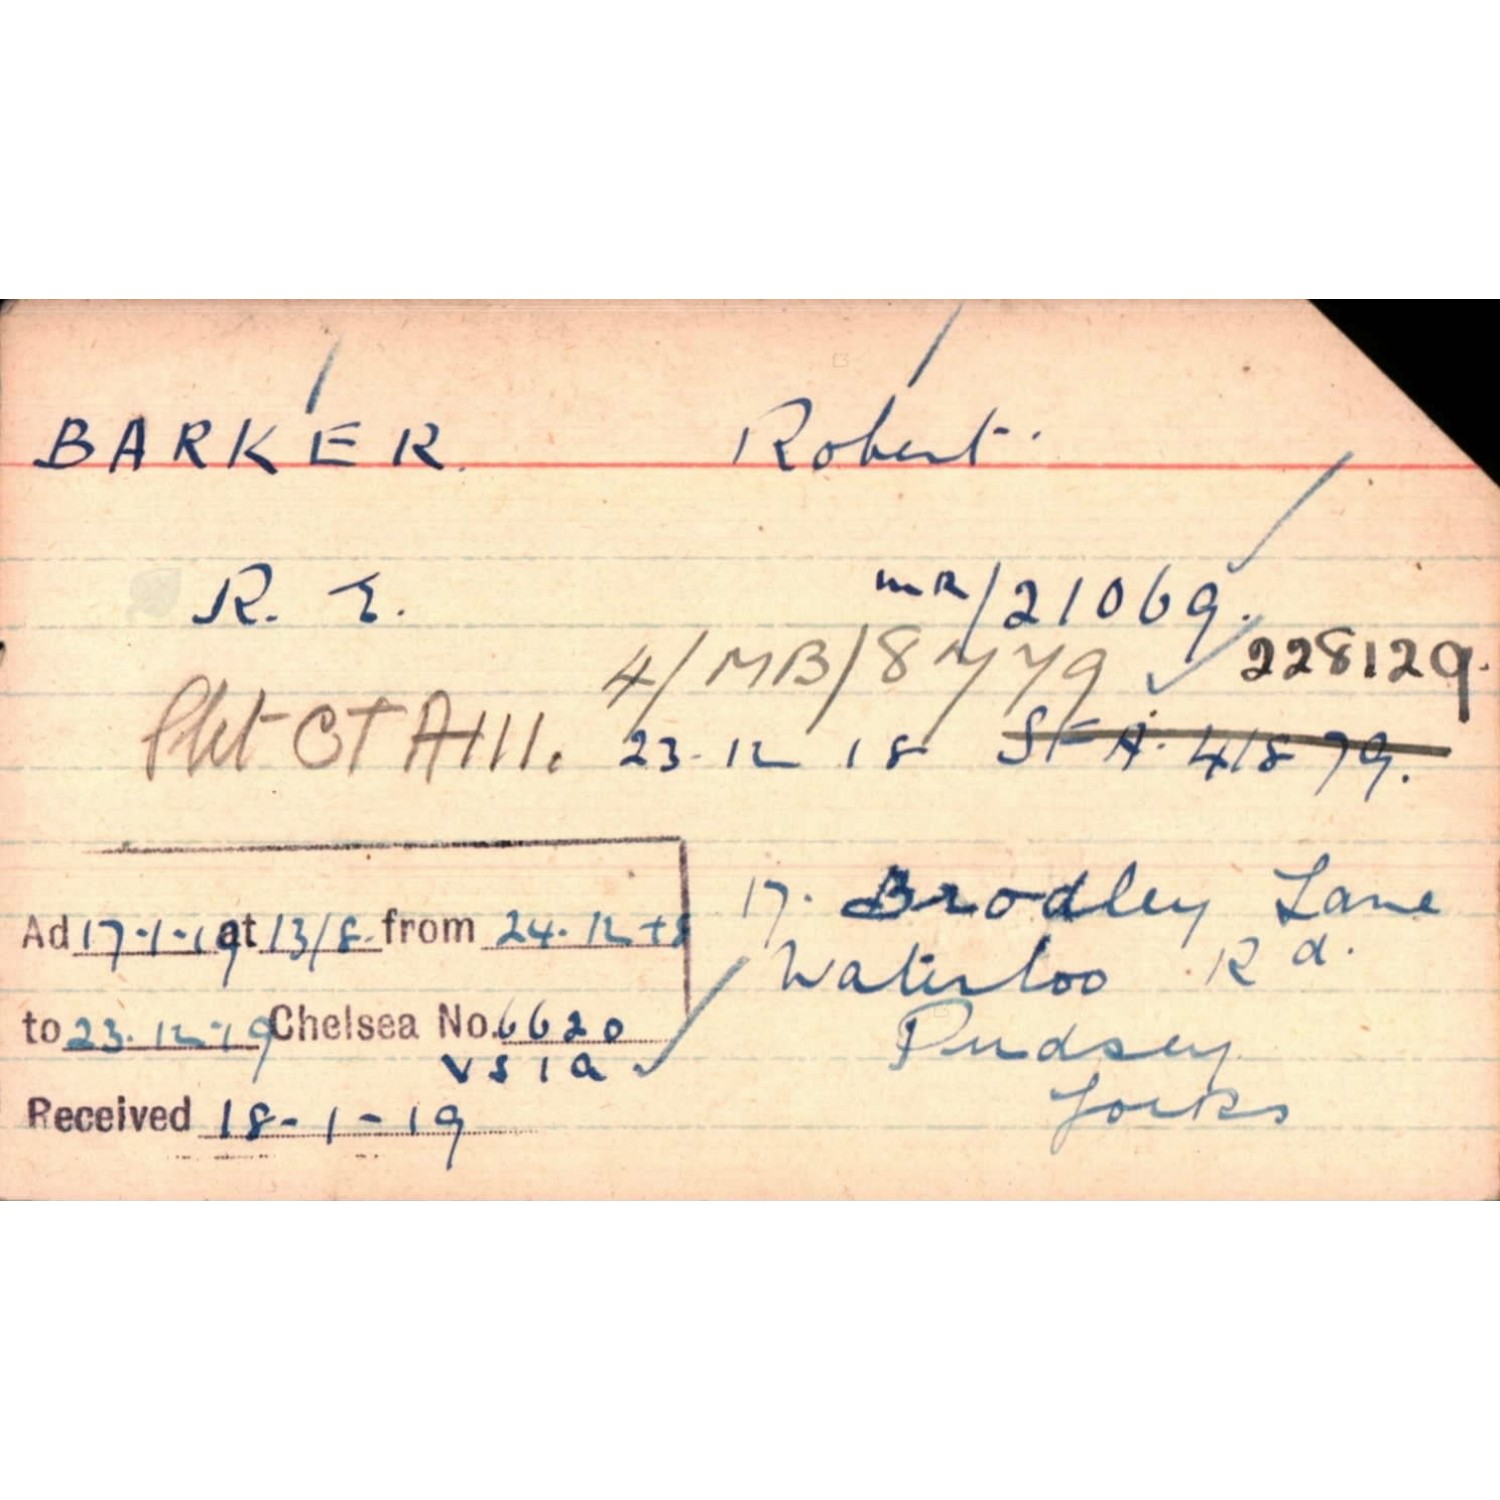 BARKER. Robert.
R. E. MR/21069.
4/MB/8779 228129.
Pkt CT A111. 23.12 18 StA. 41879.
17. Brodley Lane
Ad 17-1-19 at 13/8. from 24.12 18
Waterloo Rd.
to 23.12-19 Chelsea No. 6620
Pudsey
VS 1a
Yorks
Received 18-1-19